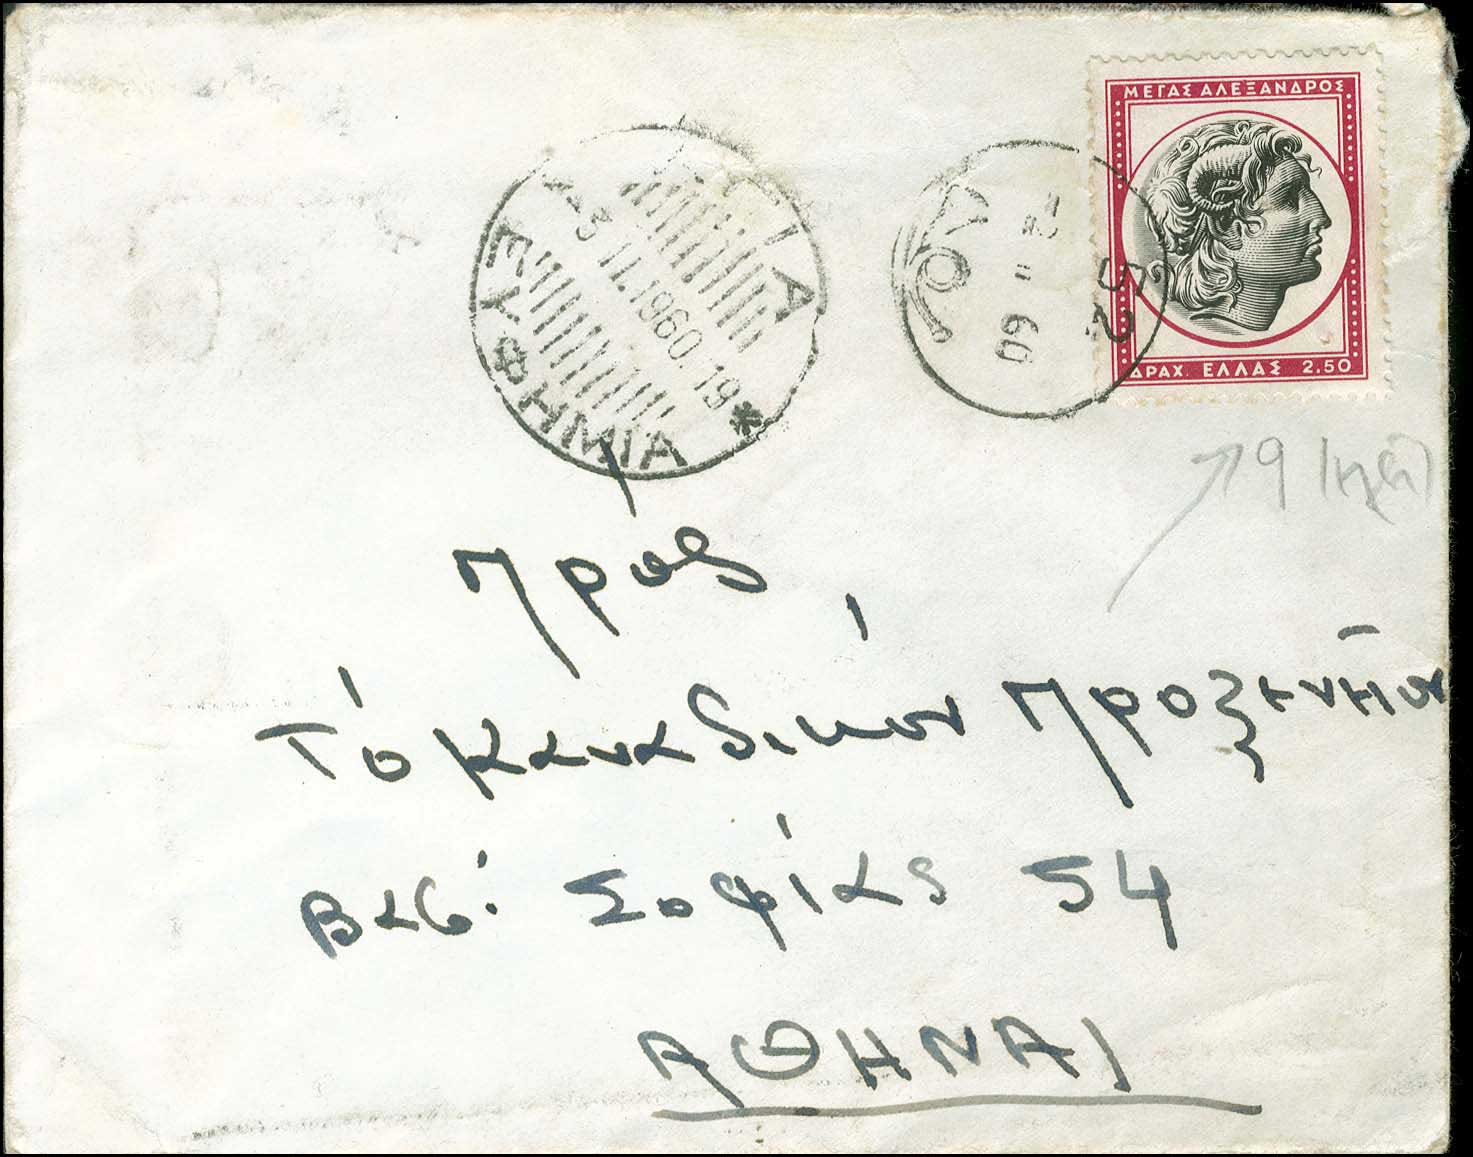 ΜΕΓΑΣ ΑΛΕΞΑΝΔΡΟΣ
ΔΡΑΧ. ΕΛΛΑΣ 2.50
ΕΥΦΗΜΙΑ *
3 11.1960.19
52
11
60
Πρὸς
Τὸ Καναδικόν Προξενῆον
Βασ. Σοφίας 54
ΑΘΗΝΑΙ